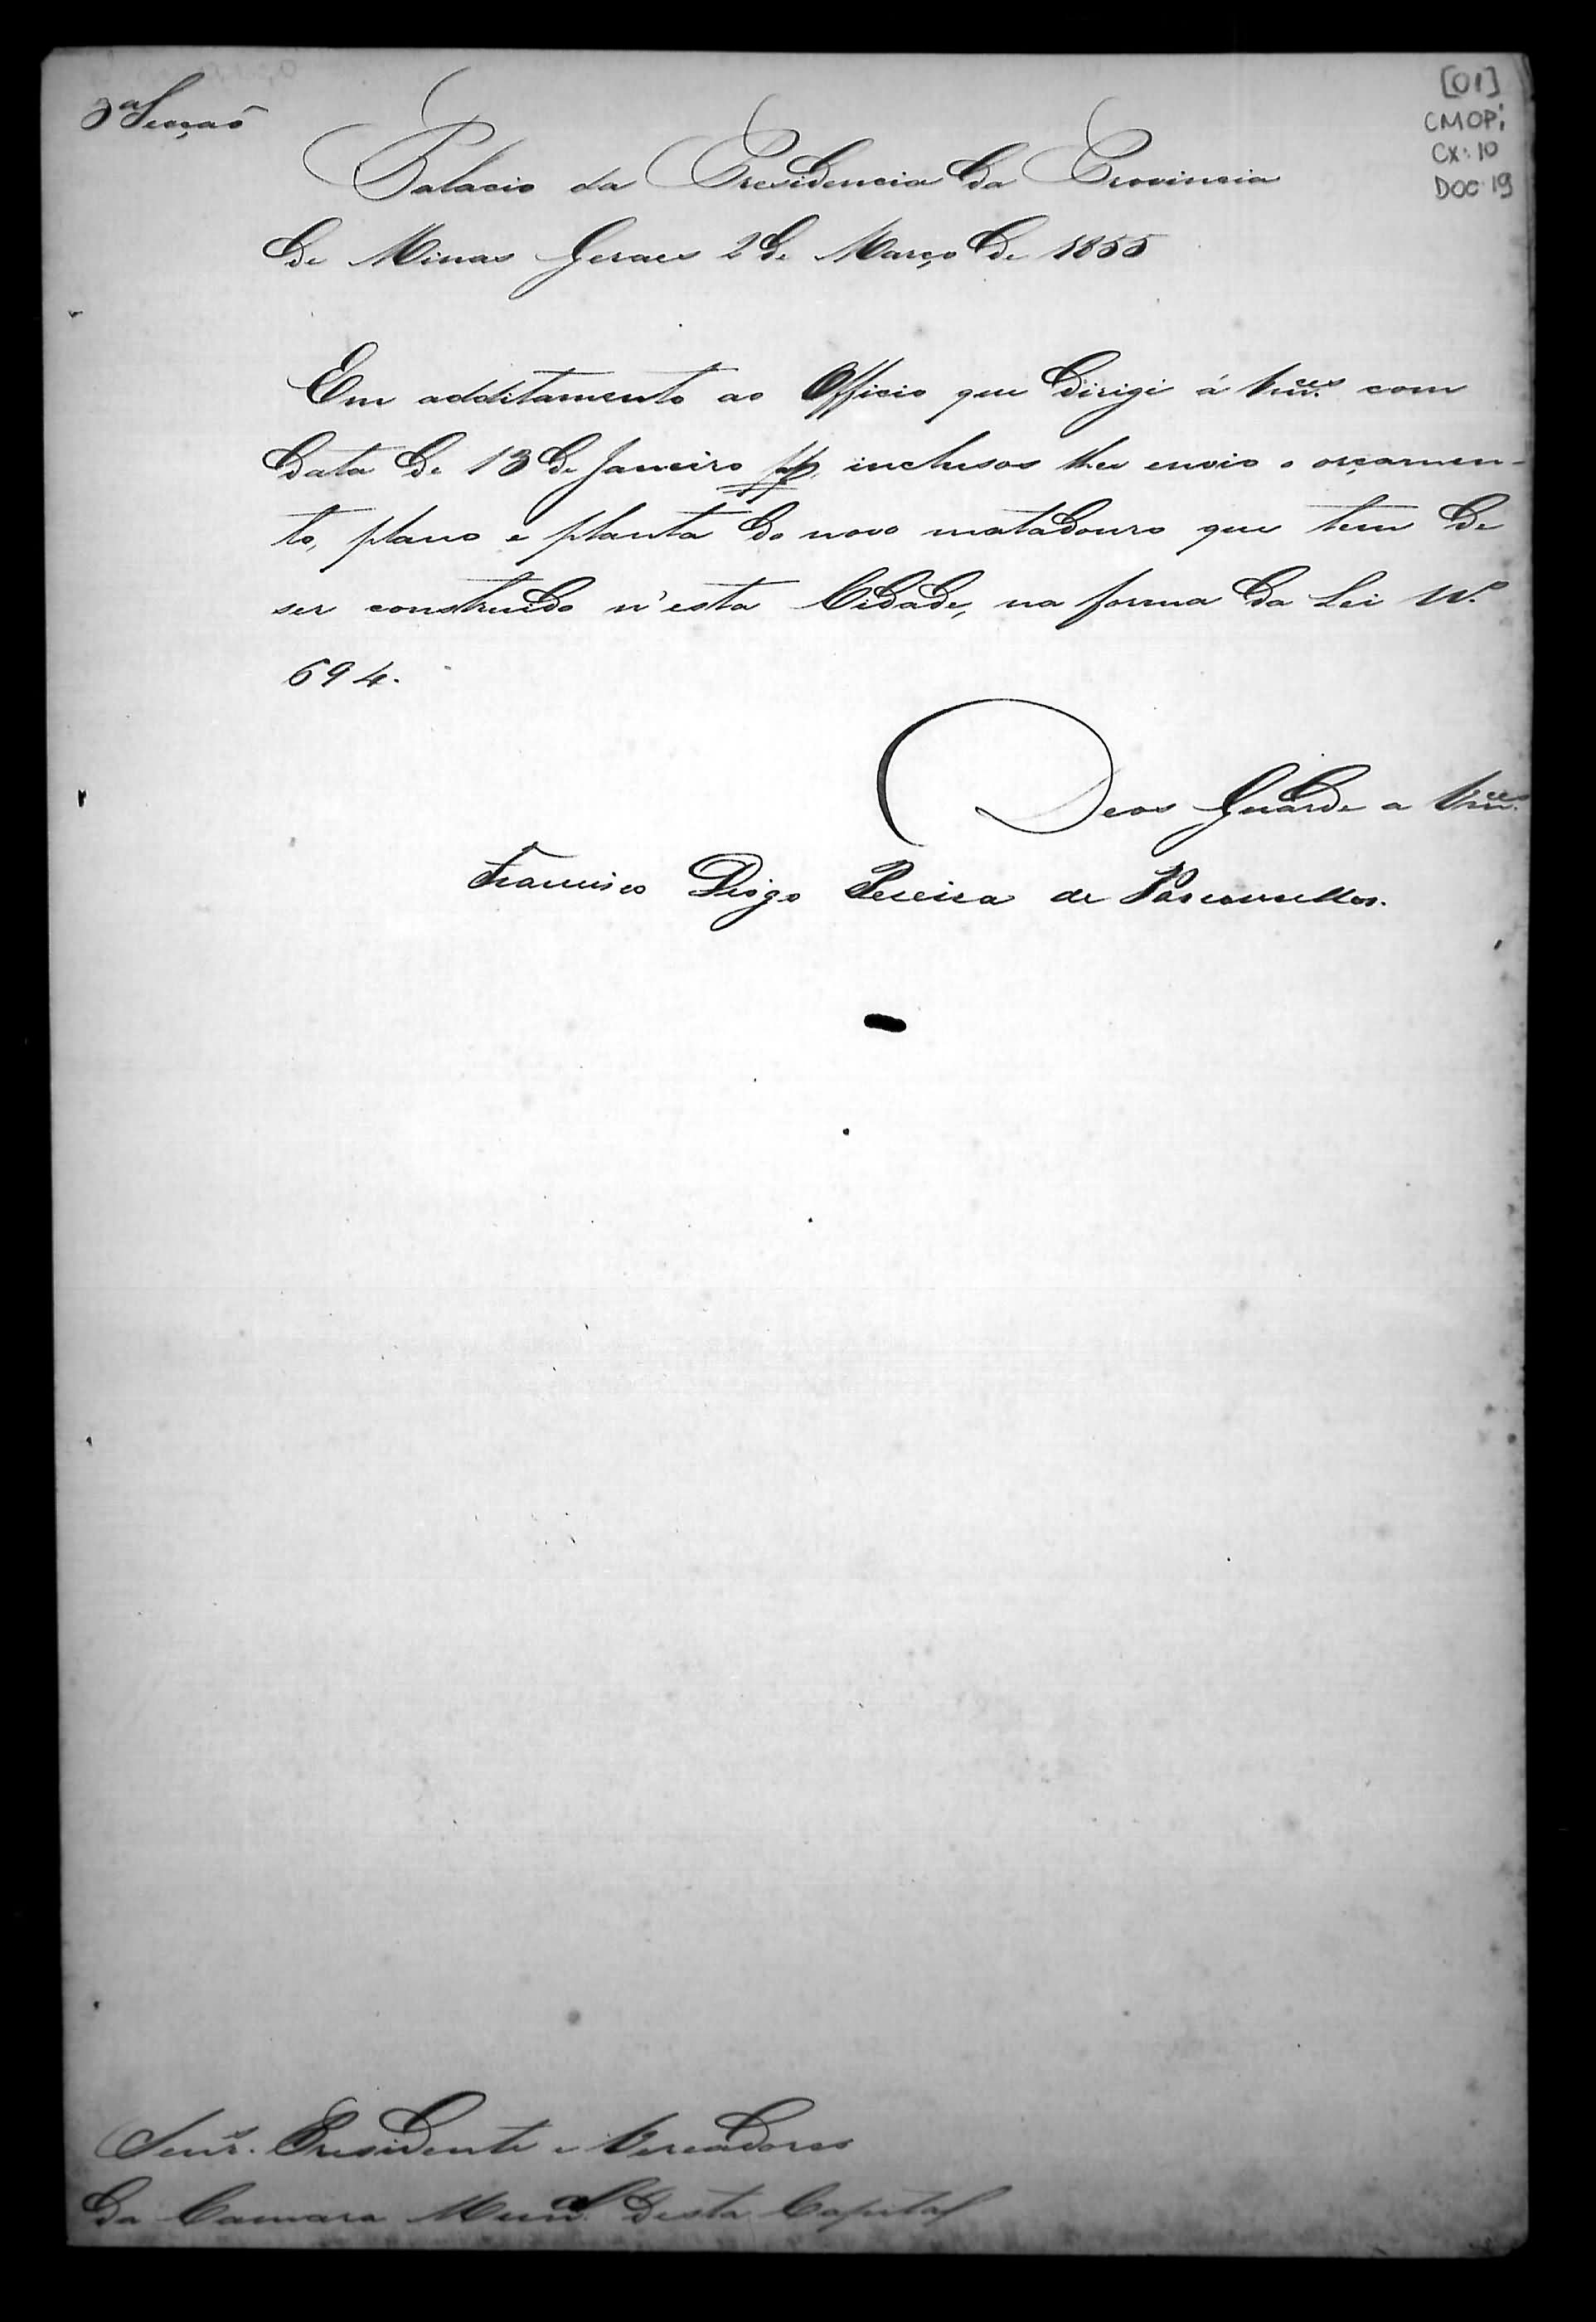 3ª Secçaõ
[01]
CMOP:
Cx: 10
DOC 19
Palacio da Presidencia da Provincia
de Minas Geraes 2 de Março de 1855
Em additamento ao Officio que dirigi á Vm.ces com
data de 13 de Janeiro pp. inclusos lhes envio o orçamen-
to, plano e planta do novo matadouro que tem de
ser construido n'esta Cidade, na forma da Lei N.º
694.
Deos Guarde a Vm.ces
Francisco Diogo Pereira de Vasconcellos.
Senr.s Presidente e Vereadores
da Camara Mun.al desta Capital